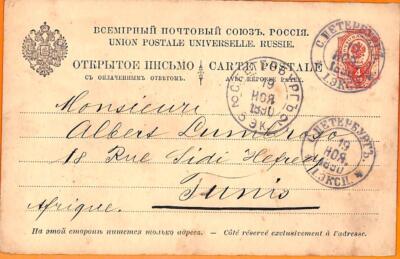 ВСЕМІРНЫЙ ПОЧТОВЫЙ СОЮЗЪ. РОССІЯ.
UNION POSTALE UNIVERSELLE. RUSSIE.
ОТКРЫТОЕ ПИСЬМО — CARTE POSTALE
СЪ ОПЛАЧЕННЫМЪ ОТВѢТОМЪ. AVEC RÉPONSE PAYÉE.
С.ПЕТЕРБУРГЪ
НОЯ.
1890
1 ЭКСП.
19
НОЯ
1890
С.ПЕТЕРБУРГЪ
19
НОЯ.
1890
1 ЭКСП.
Monsieur
Albert
18 Rue Sidi
Tunis
Afrique.
На этой сторонѣ пишется только адресъ. — Côté réservé exclusivement à l'adresse.